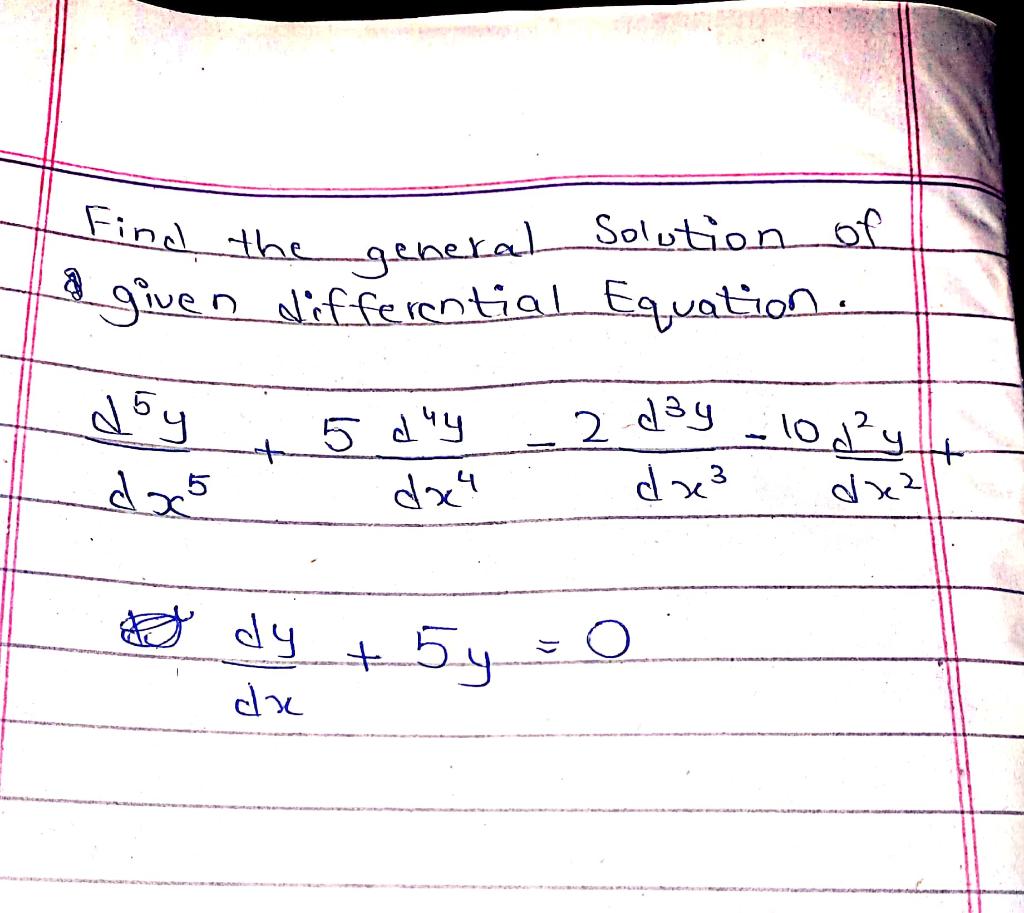 Find the general Solution of
given differential Equation.
d⁵y/dx⁵ + 5 d⁴y/dx⁴ - 2 d³y/dx³ - 10 d²y/dx² +
dy/dx + 5y = 0